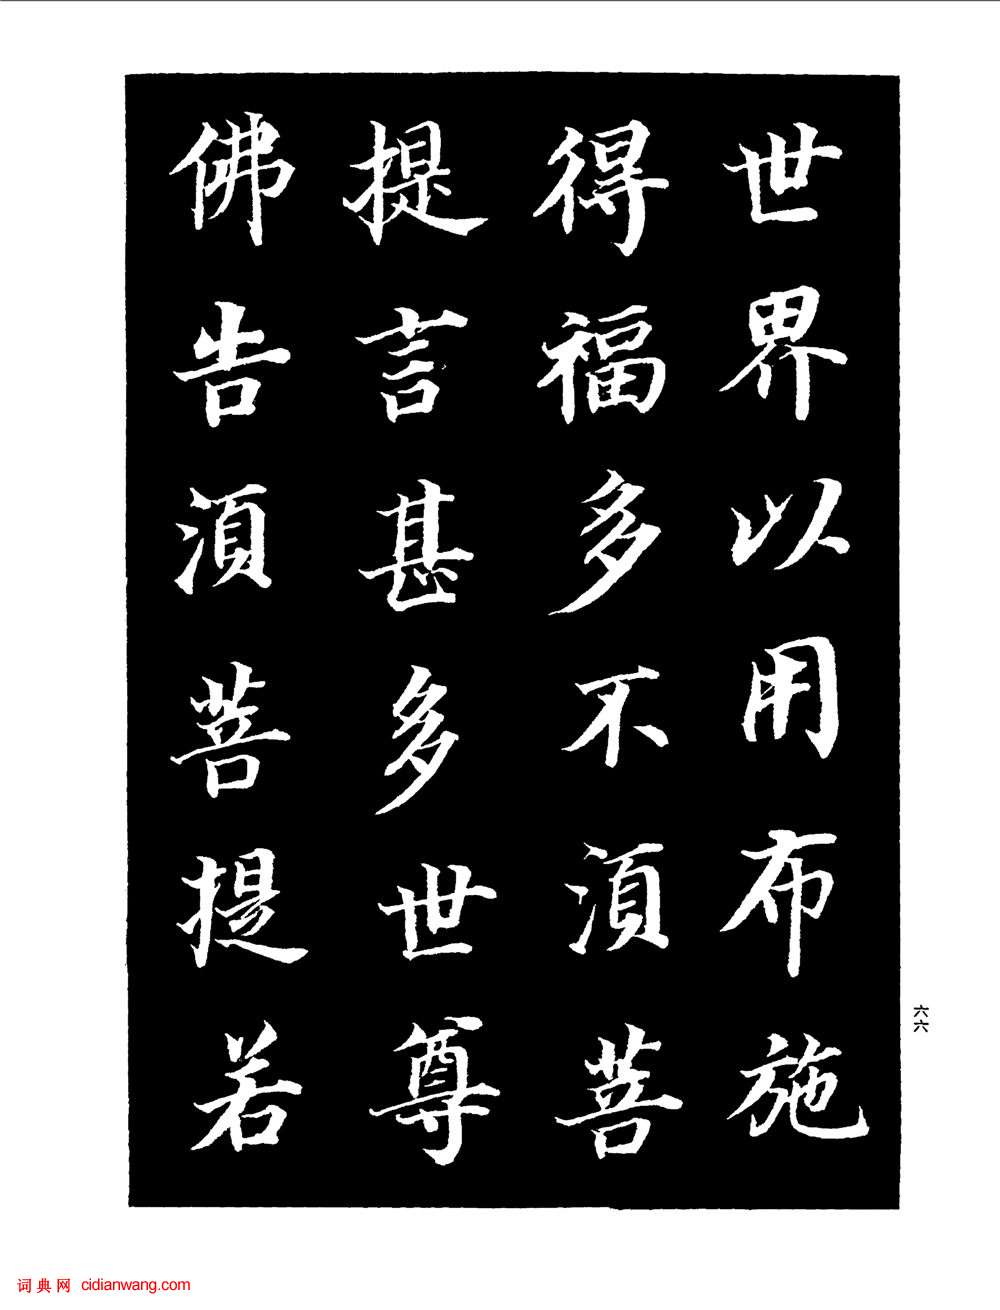 世界以用布施
得福多不湏菩
提言甚多世尊
佛告湏菩提若
六六
词典网 cidianwang.com